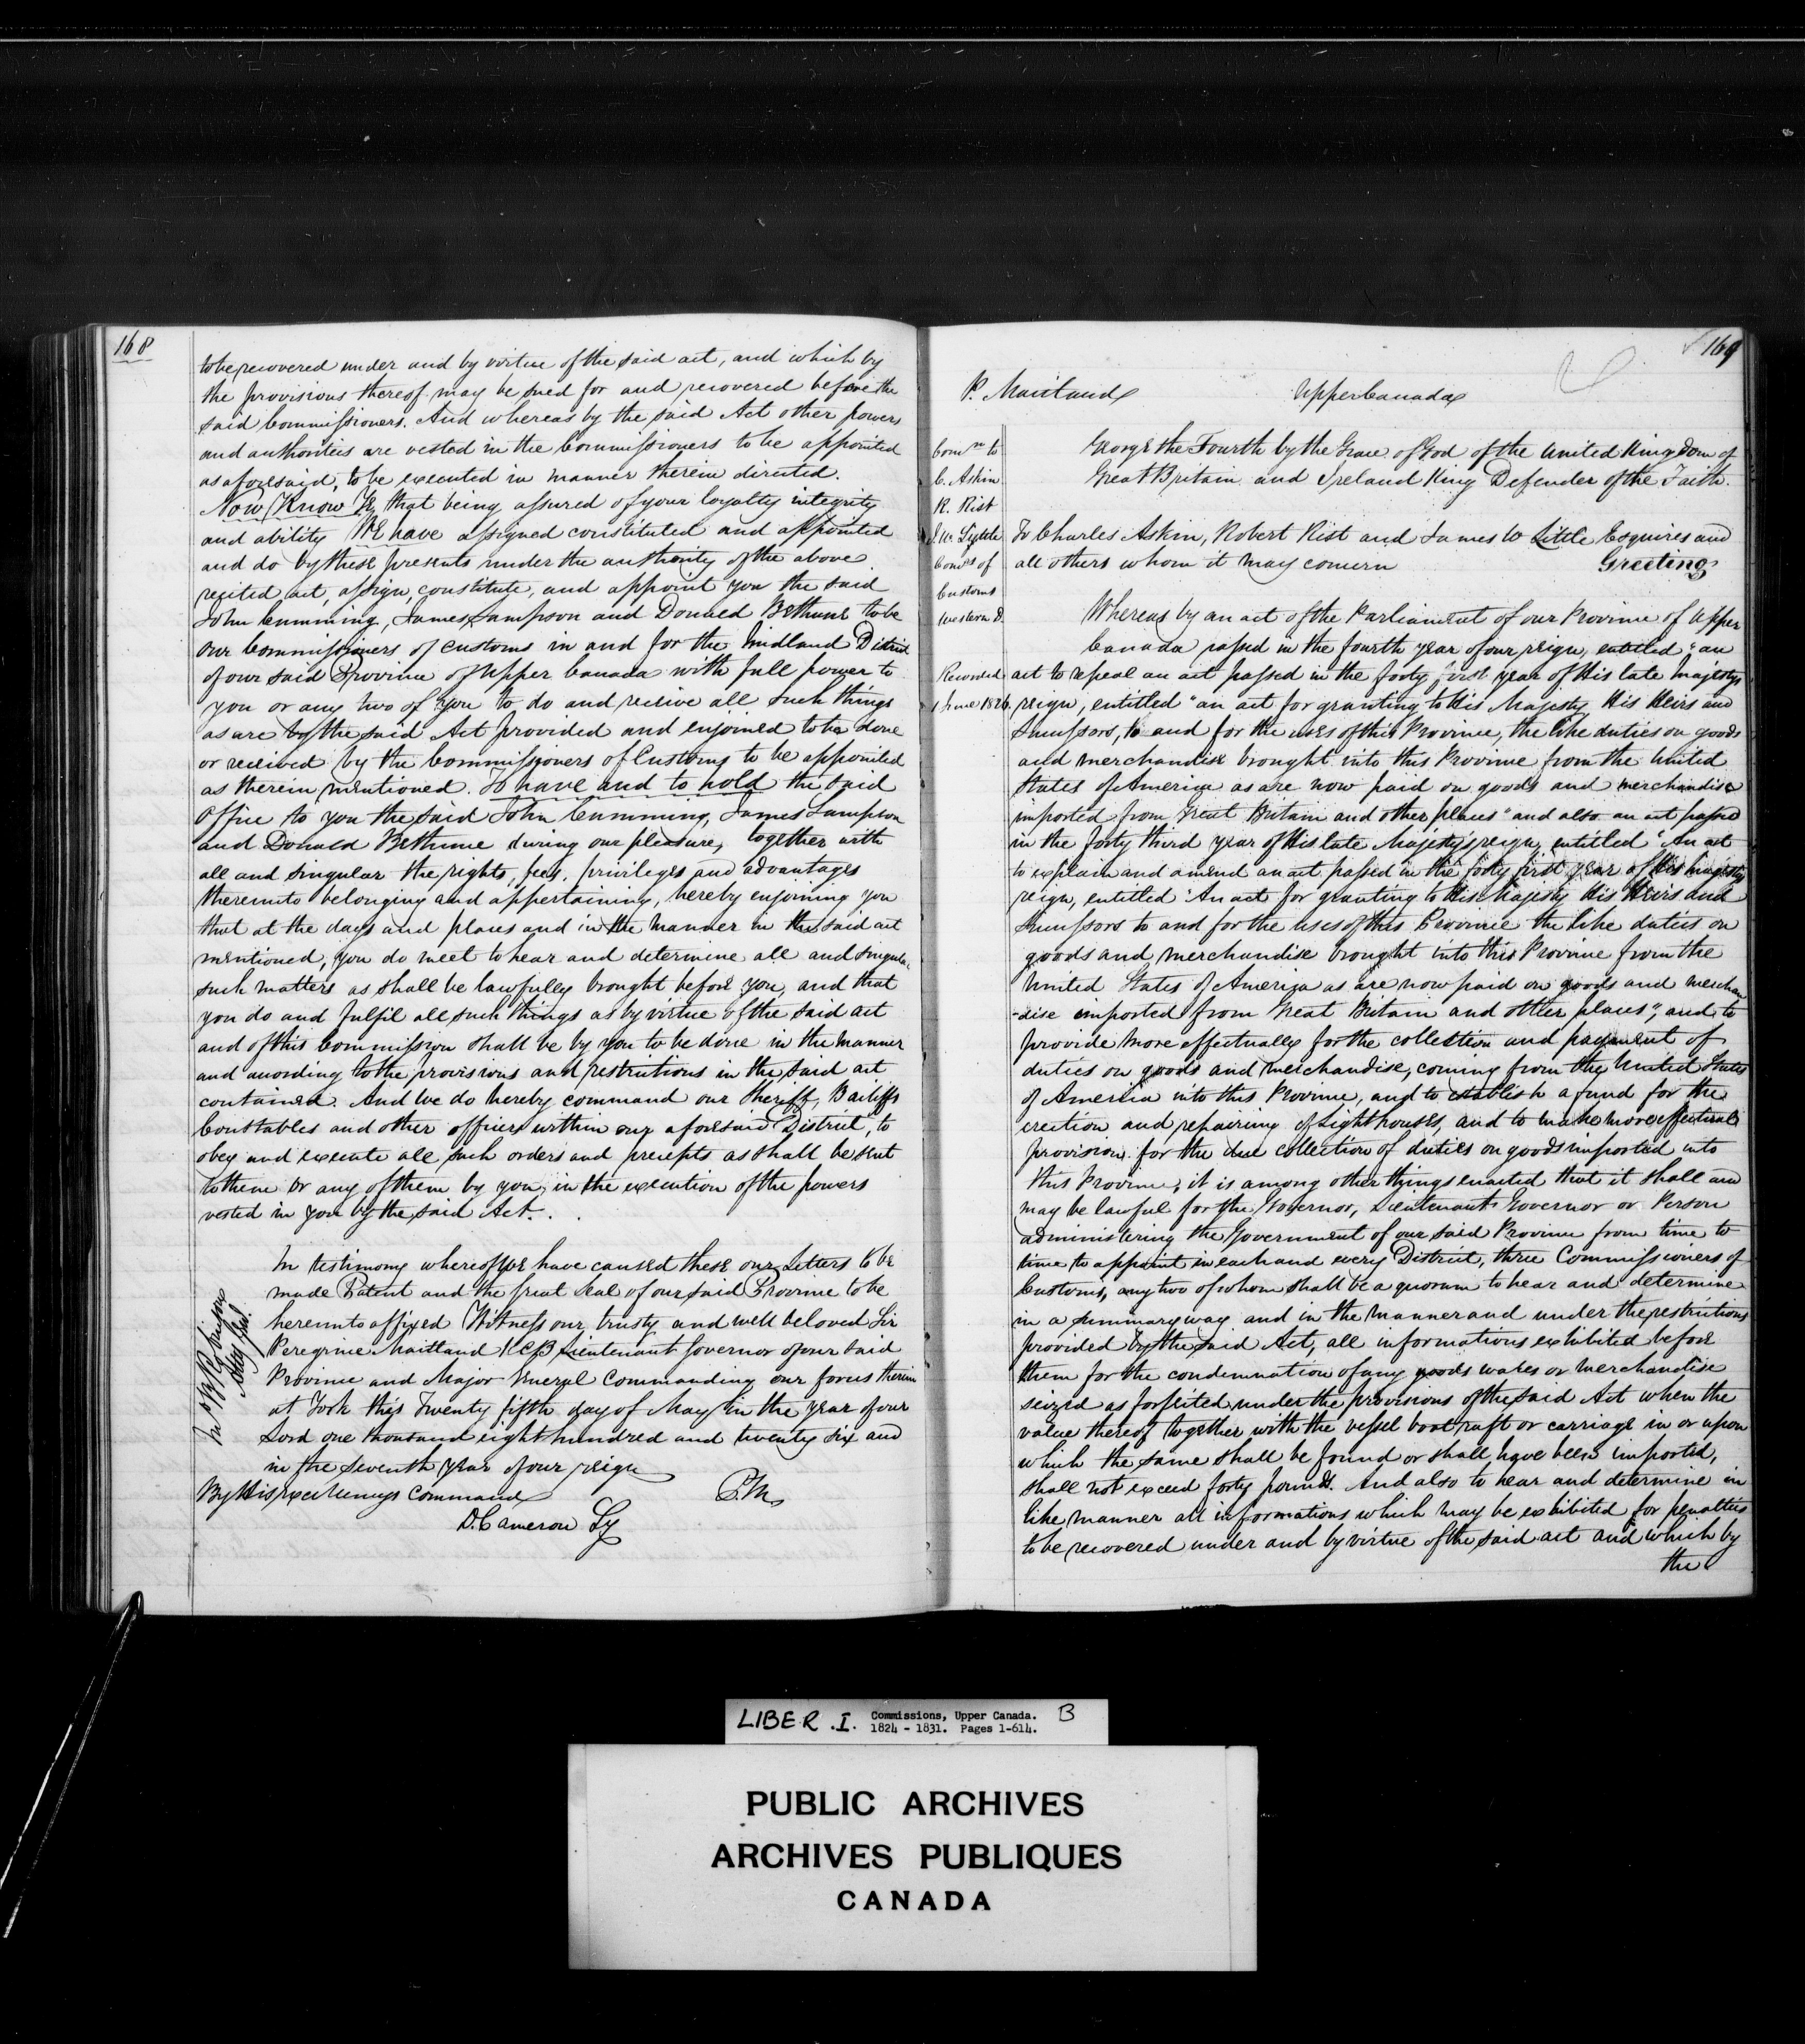 168
to be recovered under and by virtue of the said act, and which by
the provisions thereof may be sued for and recovered before the
said Commissioners. And whereas by the said Act other powers
and authorities are vested in the Commissioners to be appointed
as aforesaid, to be executed in manner therein directed.
Now Know Ye that being assured of your loyalty integrity
and ability We have assigned constituted and appointed
and do by these presents under the authority of the above
recited act, assign, constitute, and appoint you the said
John Cumming, James Sampson and Donald Bethune to be
our Commissioners of Customs in and for the Midland District
of our said Province of Upper Canada with full power to
you or any two of you to do and receive all such things
as are by the said Act provided and enjoined to be done
or received by the Commissioners of Customs to be appointed
as therein mentioned. To have and to hold the said
Office to you the said John Cumming, James Sampson
and Donald Bethune during our pleasure, together with
all and singular the rights, fees, privileges and advantages
thereunto belonging and appertaining, hereby enjoining you
that at the days and places and in the manner in the said act
mentioned, you do meet to hear and determine all and singular
such matters as shall be lawfully brought before you, and that
you do and fulfil all such things as by virtue of the said act
and of this Commission shall be by you to be done in the manner
and according to the provisions and restrictions in the said act
contained. And We do hereby command our Sheriff, Bailiffs
Constables and other officers within our aforesaid District, to
obey and execute all such orders and precepts as shall be sent
to them or any of them by you, in the execution of the powers
vested in you by the said Act.
In testimony whereof We have caused these our Letters to be
made Patent and the Great Seal of our said Province to be
hereunto affixed Witness our trusty and well beloved Sir
Peregrine Maitland KCB Lieutenant Governor of our said
Province and Major General Commanding our forces therein
at York this Twenty fifth day of May in the year of our
Lord one thousand eight hundred and twenty six and
in the Seventh year of our reign
By His Excellency's Command P.M.
D. Cameron Sy
169
P. Maitland Upper Canada
Comn to
C. Askin
R. Rist
J. W. Little
Comrs of
Customs
Western D.
Recorded
1 June 1826
George the Fourth by the Grace of God of the United Kingdom of
Great Britain and Ireland King Defender of the Faith.
To Charles Askin, Robert Rist and James W Little Esquires and
all others whom it may concern Greeting
Whereas by an act of the Parliament of our Province of Upper
Canada passed in the fourth year of our reign, entitled "an
act to repeal an act passed in the forty first year of His late majestys
reign, entitled "an act for granting to His Majesty His Heirs and
Successors, to and for the uses of this Province, the like duties on goods
and merchandise brought into this Province from the United
States of America as are now paid on goods and merchandise
imported from Great Britain and other places" and also an act passed
in the forty third year of His late Majesty's reign, entitled "An act
to explain and amend an act passed in the forty first year of His majestys
reign, entitled "An act for granting to His Majesty His Heirs and
Successors to and for the uses of this Province the like duties on
goods and merchandise brought into this Province from the
United States of America as are now paid on goods and merchan
-dise imported from Great Britain and other places", and to
provide more effectually for the collection and payment of
duties on goods and merchandise, coming from the United States
of America into this Province, and to establish a fund for the
erection and repairing of Lighthouses, and to make more effectual
provision for the due collection of duties on goods imported into
this Province, it is among other things enacted that it shall and
may be lawful for the Governor, Lieutenant Governor or Person
administering the Government of our said Province from time to
time to appoint in each and every District, three Commissioners of
Customs, any two of whom shall be a quorum to hear and determine
in a summary way and in the manner and under the restrictions
provided by the said Act, all informations exhibited before
them for the condemnation of any goods wares or merchandise
seized as forfeited under the provisions of the said Act when the
value thereof together with the vessel boat, raft or carriage in or upon
which the same shall be found or shall have been imported,
shall not exceed forty pounds. And also to hear and determine in
like manner all informations which may be exhibited for penalties
to be recovered under and by virtue of the said act and which by
the
LIBER .I. Commissions, Upper Canada. B
1824 - 1831. Pages 1-614.
PUBLIC ARCHIVES
ARCHIVES PUBLIQUES
CANADA